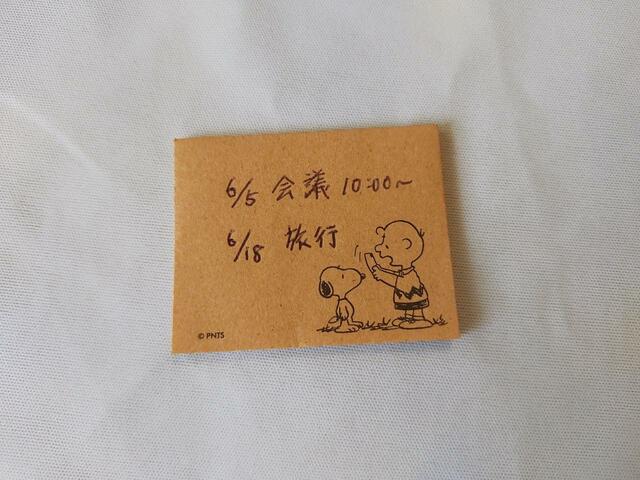 6/5 会議 10:00~
6/18 旅行
© PNTS